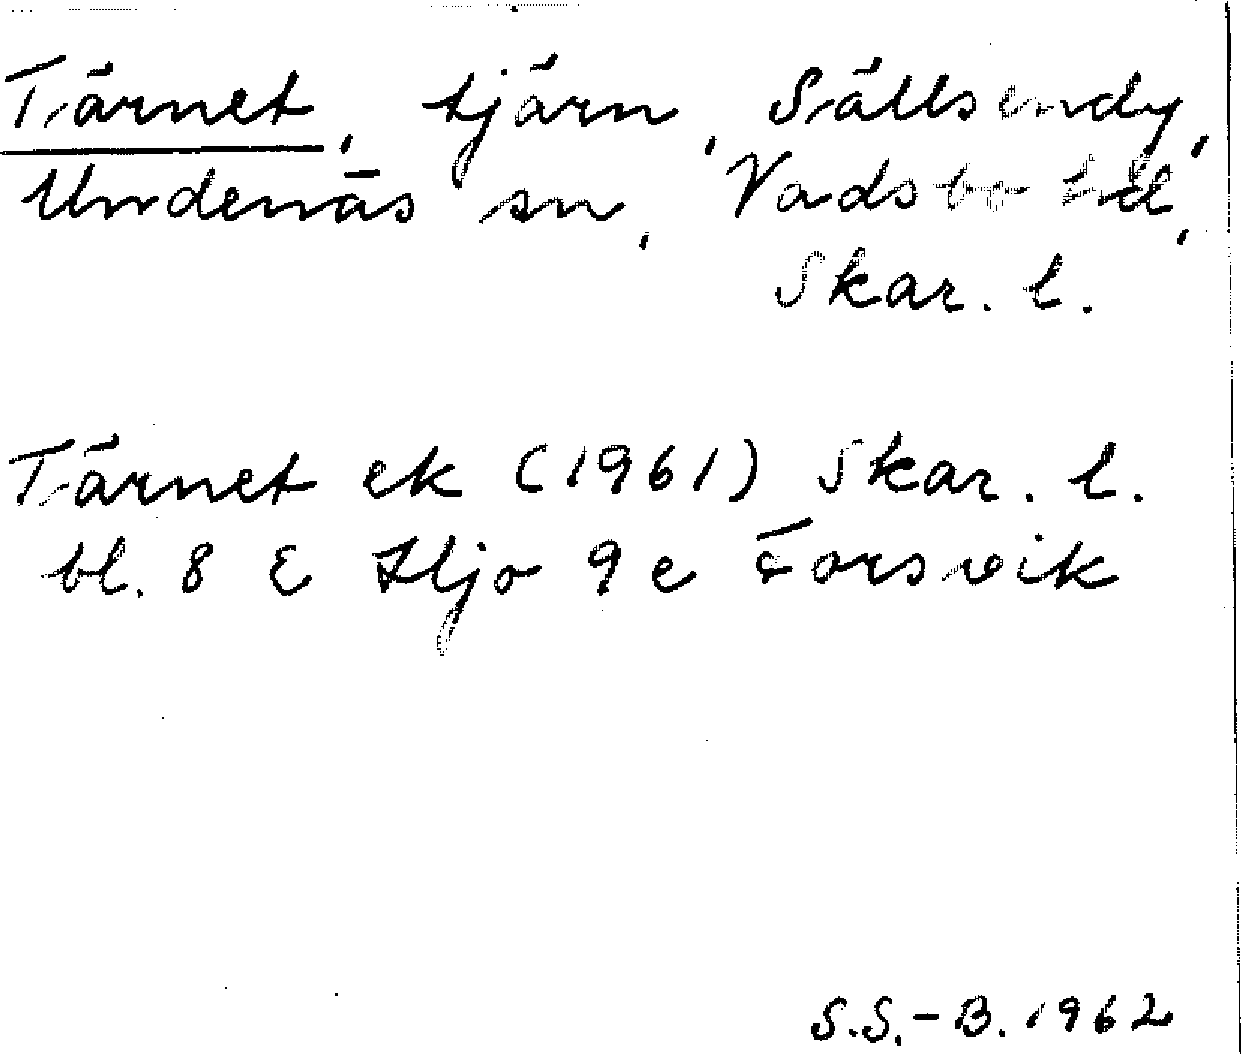 Tärnet, tjärn, Sällsendy,
Undenäs sn, Vadsbo hd,
Skar. l.
Tärnet ek (1961) Skar. l.
bl. 8 E Hjo 9 e Forsvik
S.S.-B. 1962